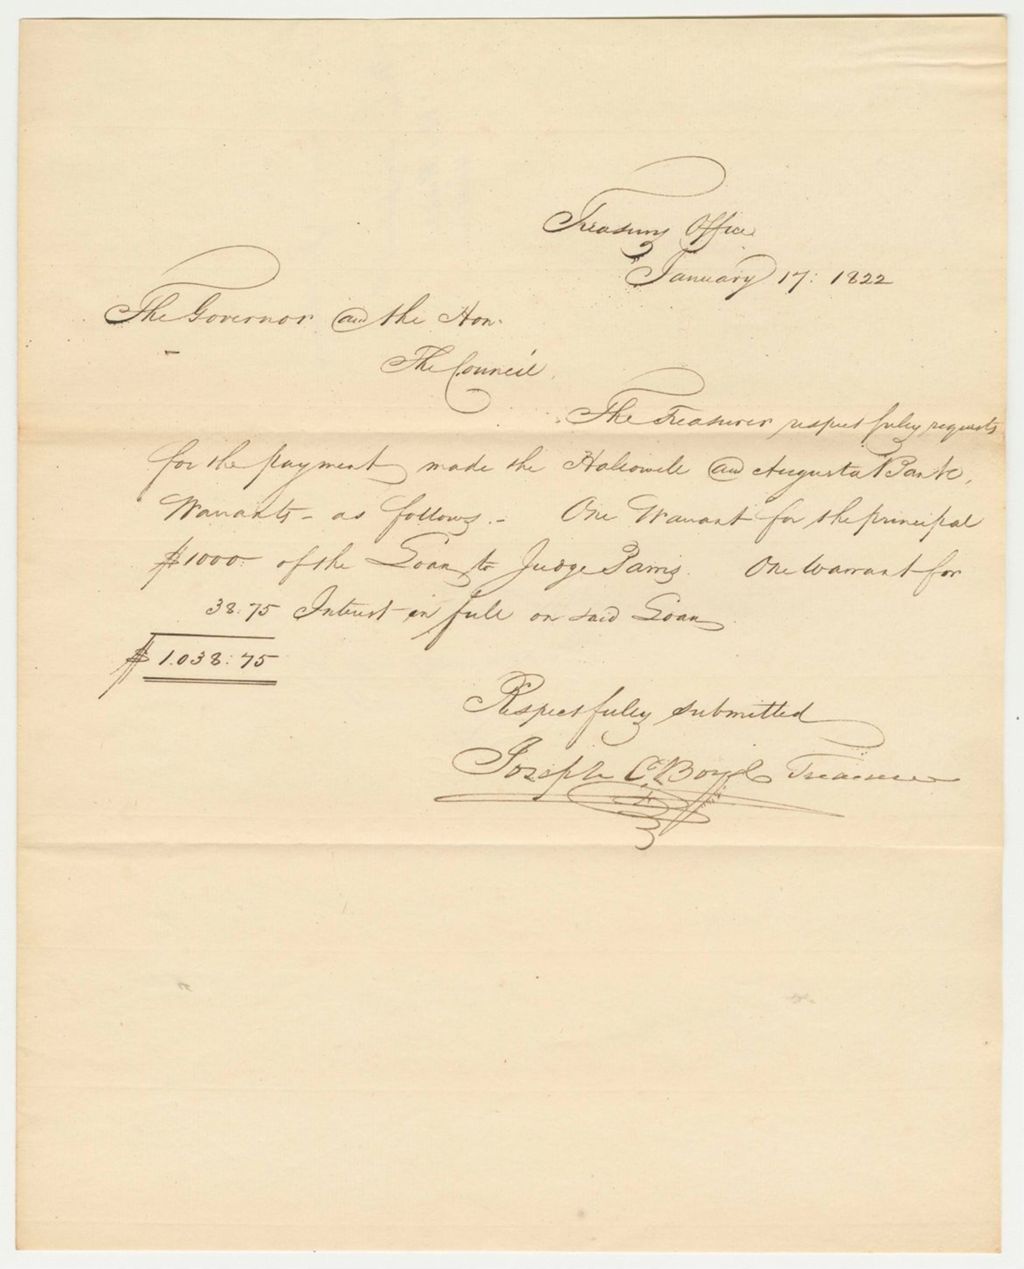 Treasury Office
January 17: 1822
The Governor and the Hon.
The Council.
The Treasurer respectfuly requests
for the payment made the Hallowell and Augusta Bank,
Warrants - as follows. - One Warrant for the principal
$1000: of the Loan to Judge Parris. One Warrant for
38:75 Interest in full on said Loan
$1.038:75
Respectfuly submitted
Joseph C. Boyd Treasurer